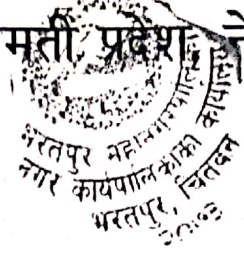 मती प्रदेश
भरतपुर महानगरपालिका
नगर कार्यपालिकाको कार्यालय
भरतपुर, चितवन